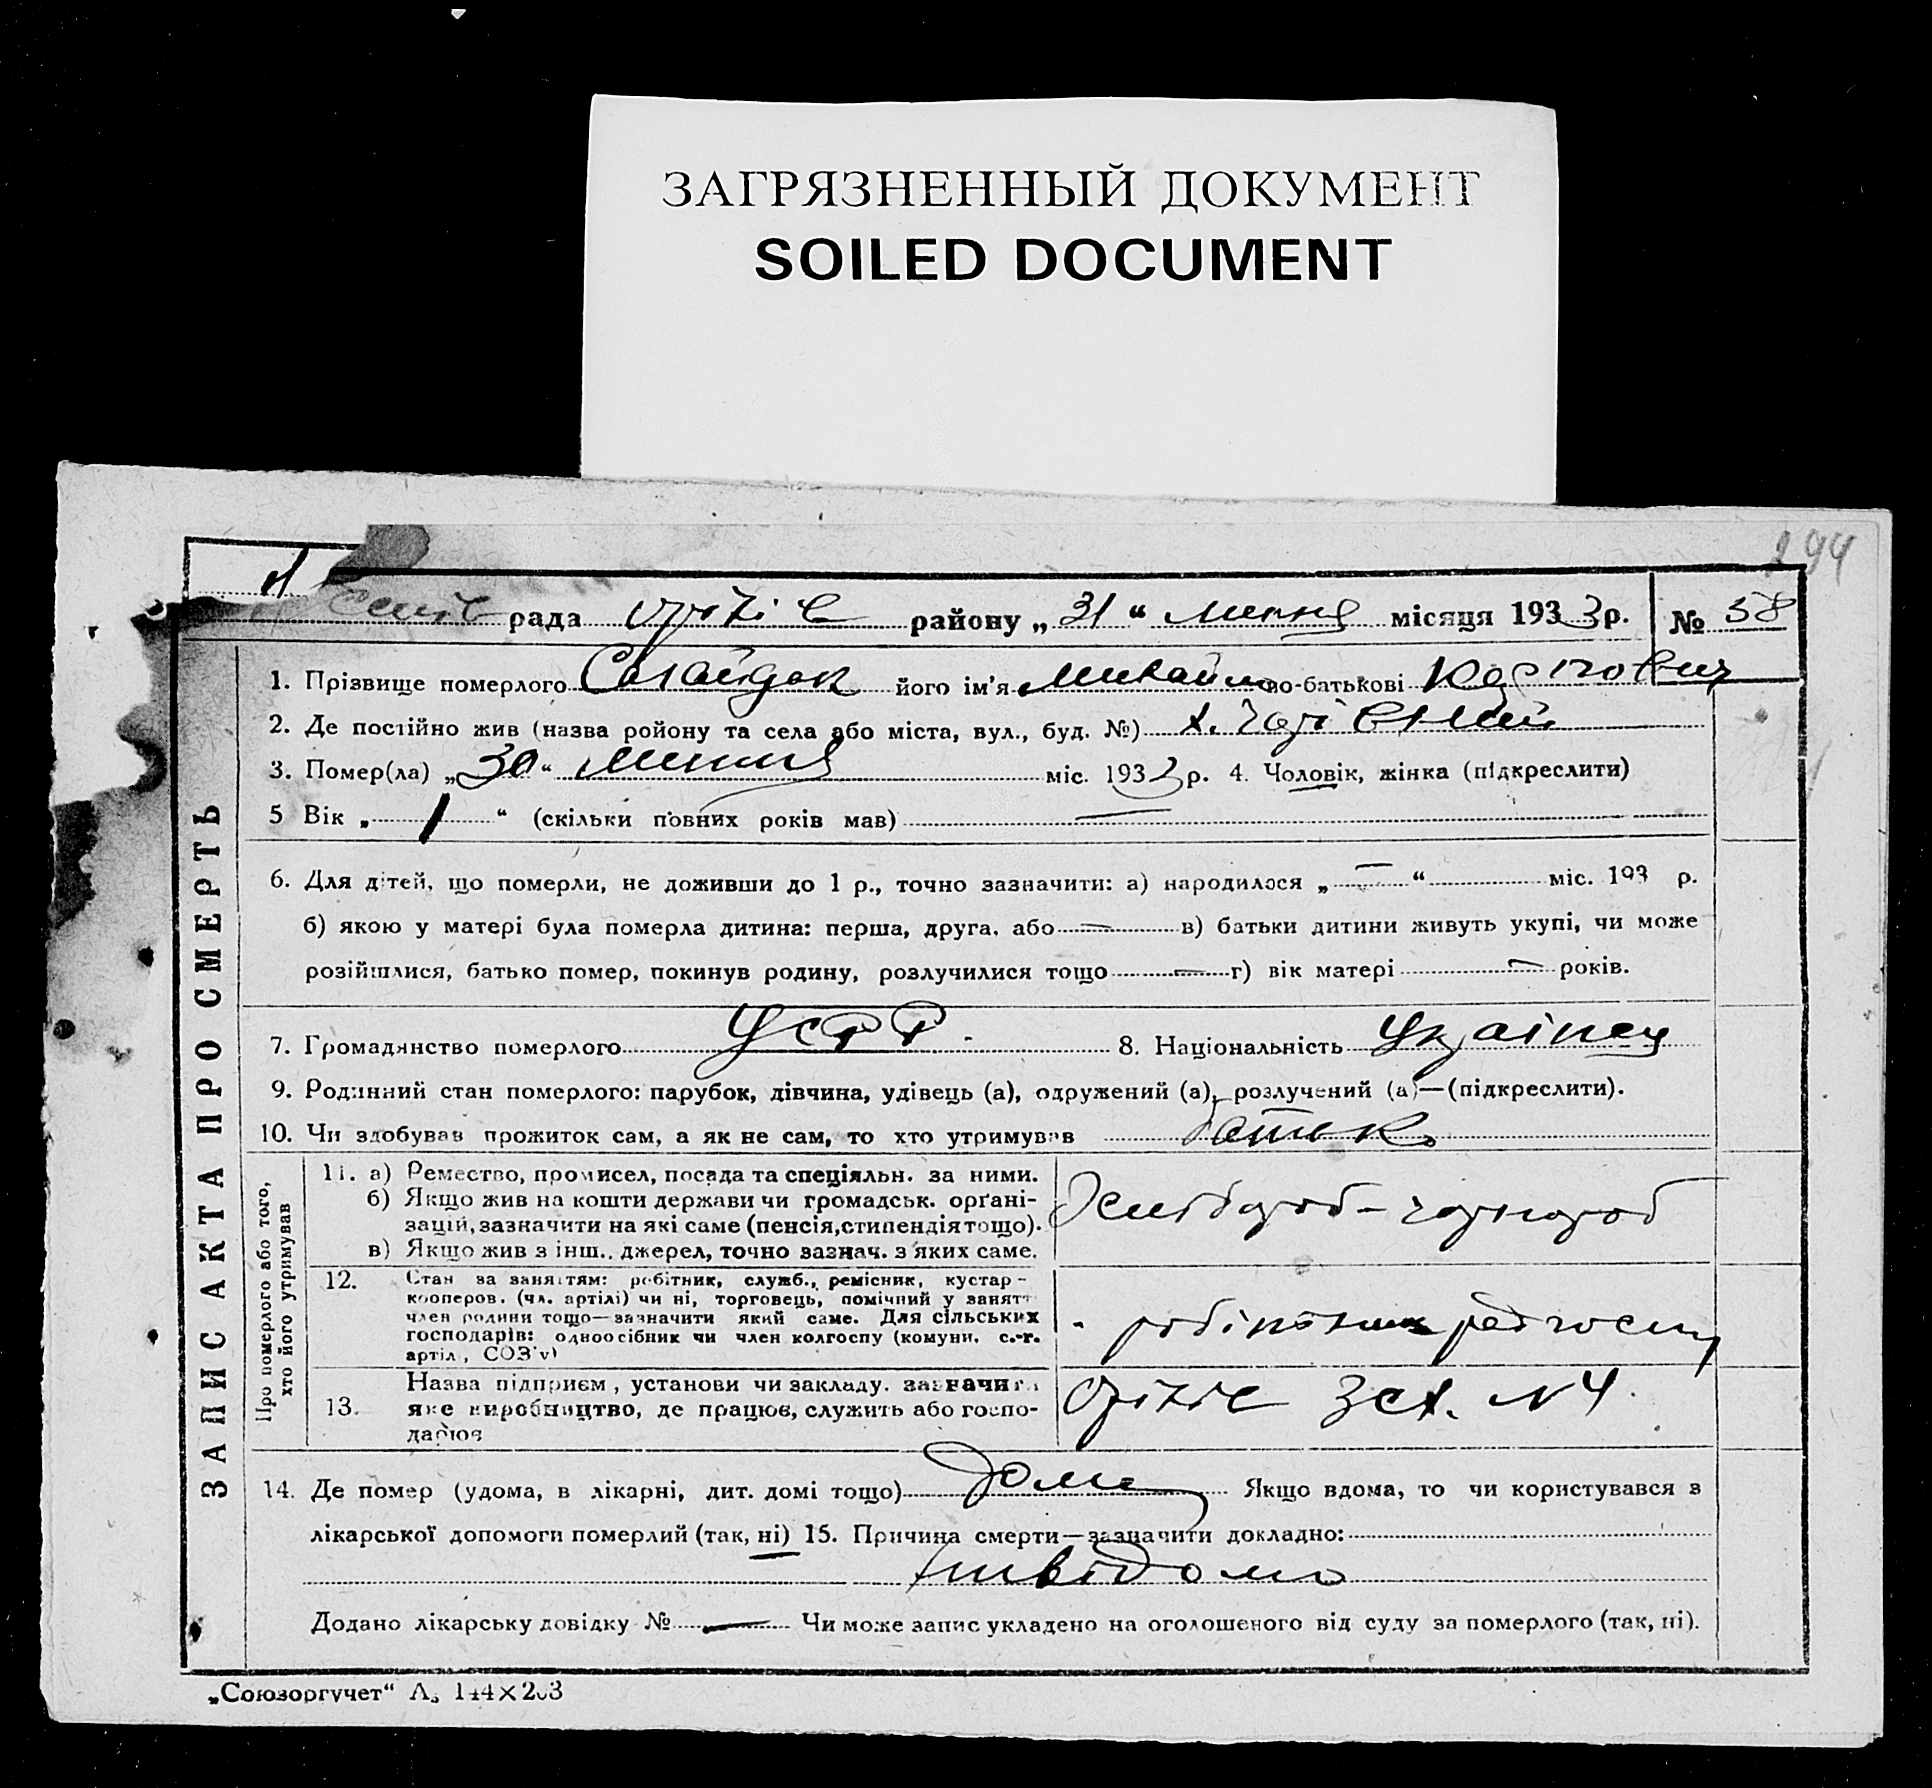 ЗАГРЯЗНЕННЫЙ ДОКУМЕНТ
SOILED DOCUMENT
рада району „31“ липня місяця 1933 р. № 58
1. Прізвище померлого його ім'я Михайло по-батькові
2. Де постійно жив (назва ройону та села або міста, вул., буд. №) х.
3. Помер(ла) „30“ липня міс. 1933 р. 4. Чоловік, жінка (підкреслити)
5 Вік „1“ (скільки повних років мав) —
6. Для дітей, що померли, не доживши до 1 р., точно зазначити: а) народилося „—“ міс. 193 р.
б) якою у матері була померла дитина: перша, друга, або — в) батьки дитини живуть укупі, чи може
розійшлися, батько помер, покинув родину, розлучилися тощо — г) вік матері — років.
7. Громадянство померлого УСРР. 8. Національність Українец
9. Родинний стан померлого: парубок, дівчина, удівець (а), одружений (а), розлучений (а)—(підкреслити).
10. Чи здобував прожиток сам, а як не сам, то хто утримував батько
ЗАПИС АКТА ПРО СМЕРТЬ
Про померлого або того, хто його утримував
11. а) Ремество, промисел, посада та спеціяльн. за ними.
б) Якщо жив на кошти держави чи громадськ. орґані-
зацій, зазначити на які саме (пенсія, стипендія тощо).
в) Якщо жив з інш.. джерел, точно зазнач. з яких саме.
хлібороб - чорнороб
12. Стан за заняттям: робітник, служб., ремісник, кустар -
кооперов. (чл. артілі) чи ні, торговець, помічний у занятт
член родини тощо—зазначити який саме. Для сільських
господарів: одноосібник чи член колгоспу (комуни, с.-г.
артіл, СОЗ'у)
робітник радгоспу
13. Назва підприєм, установи чи закладу. зазначити
яке виробництво, де працює, служить або госпо-
дарює
№ 4
14. Де помер (удома, в лікарні, дит. домі тощо) дома Якщо вдома, то чи користувався з
лікарської допомоги померлий (так, ні) 15. Причина смерти—зазначити докладно:
невідомо
Додано лікарську довідку № — Чи може запис укладено на оголошеного від суду за померлого (так, ні).
„Союзоргучет“